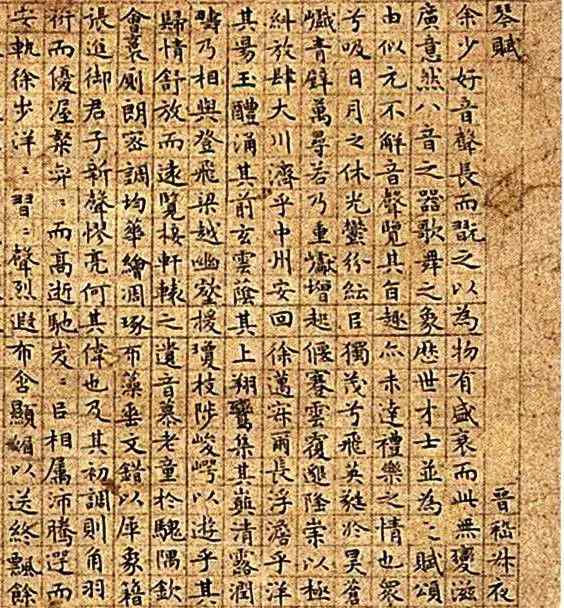 琴賦 晉嵇叔夜
余少好音聲長而翫之以為物有盛衰而此無變滋
廣意然八音之器歌舞之象歷世才士並為〻賦頌
由似元不解音聲覽其旨趣亦未達禮樂之情也眾
兮吸日月之休光鬱紛紜以獨茂兮飛英蕤於昊蒼
巇青壁萬尋若乃重巘增起偃蹇雲覆邈隆崇以極
糾放肆大川濟乎中州安回徐邁寂爾長浮澹乎洋
其場玉醴涌其前玄雲蔭其上翔鸞集其巔清露潤
疇乃相與登飛梁越幽壑援瓊枝陟峻崿以遊乎其
歸情舒放而遠覽接軒轅之遺音慕老童於騩隅欽
會裛廁朗密調均華繪凋琢布藻垂文錯以犀象籍
張進御君子新聲憀亮何其偉也及其初調則角羽
衍而優渥粲弈〻而高逝馳岌〻以相屬沛騰遌而
安軌徐步洋〻習〻聲烈遐布含顯媚以送終飄餘